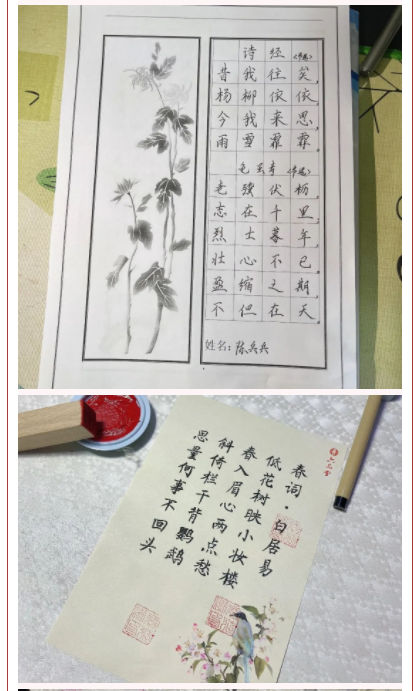 诗经(节选)
昔我往矣
杨柳依依
今我来思
雨雪霏霏
龟虽寿(节选)
老骥伏枥
志在千里
烈士暮年
壮心不已
盈缩之期
不但在天
姓名:陈兵兵
春词·白居易
低花树映小妆楼
春入眉心两点愁
斜倚栏干背鹦鹉
思量何事不回头